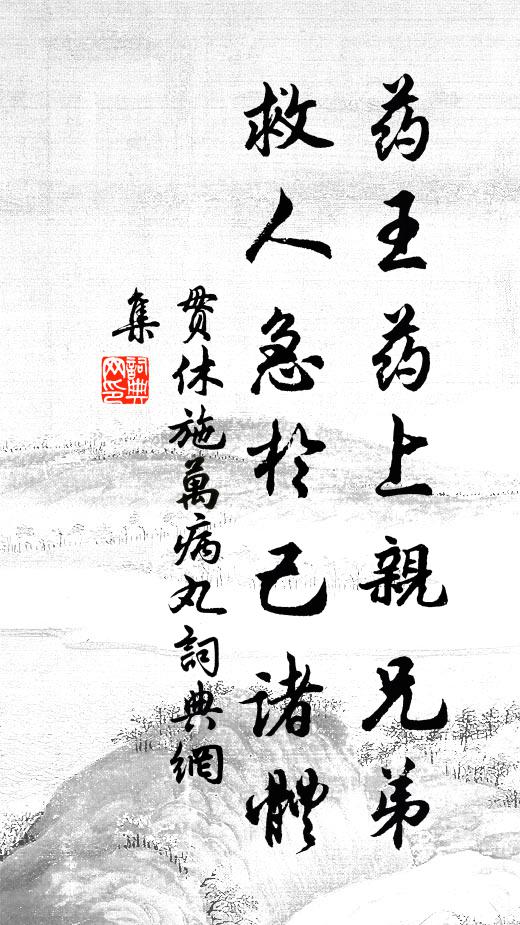 药王药上親兄弟
救人急於己諸體
貫休施萬病丸詞典網
集
詞典网印